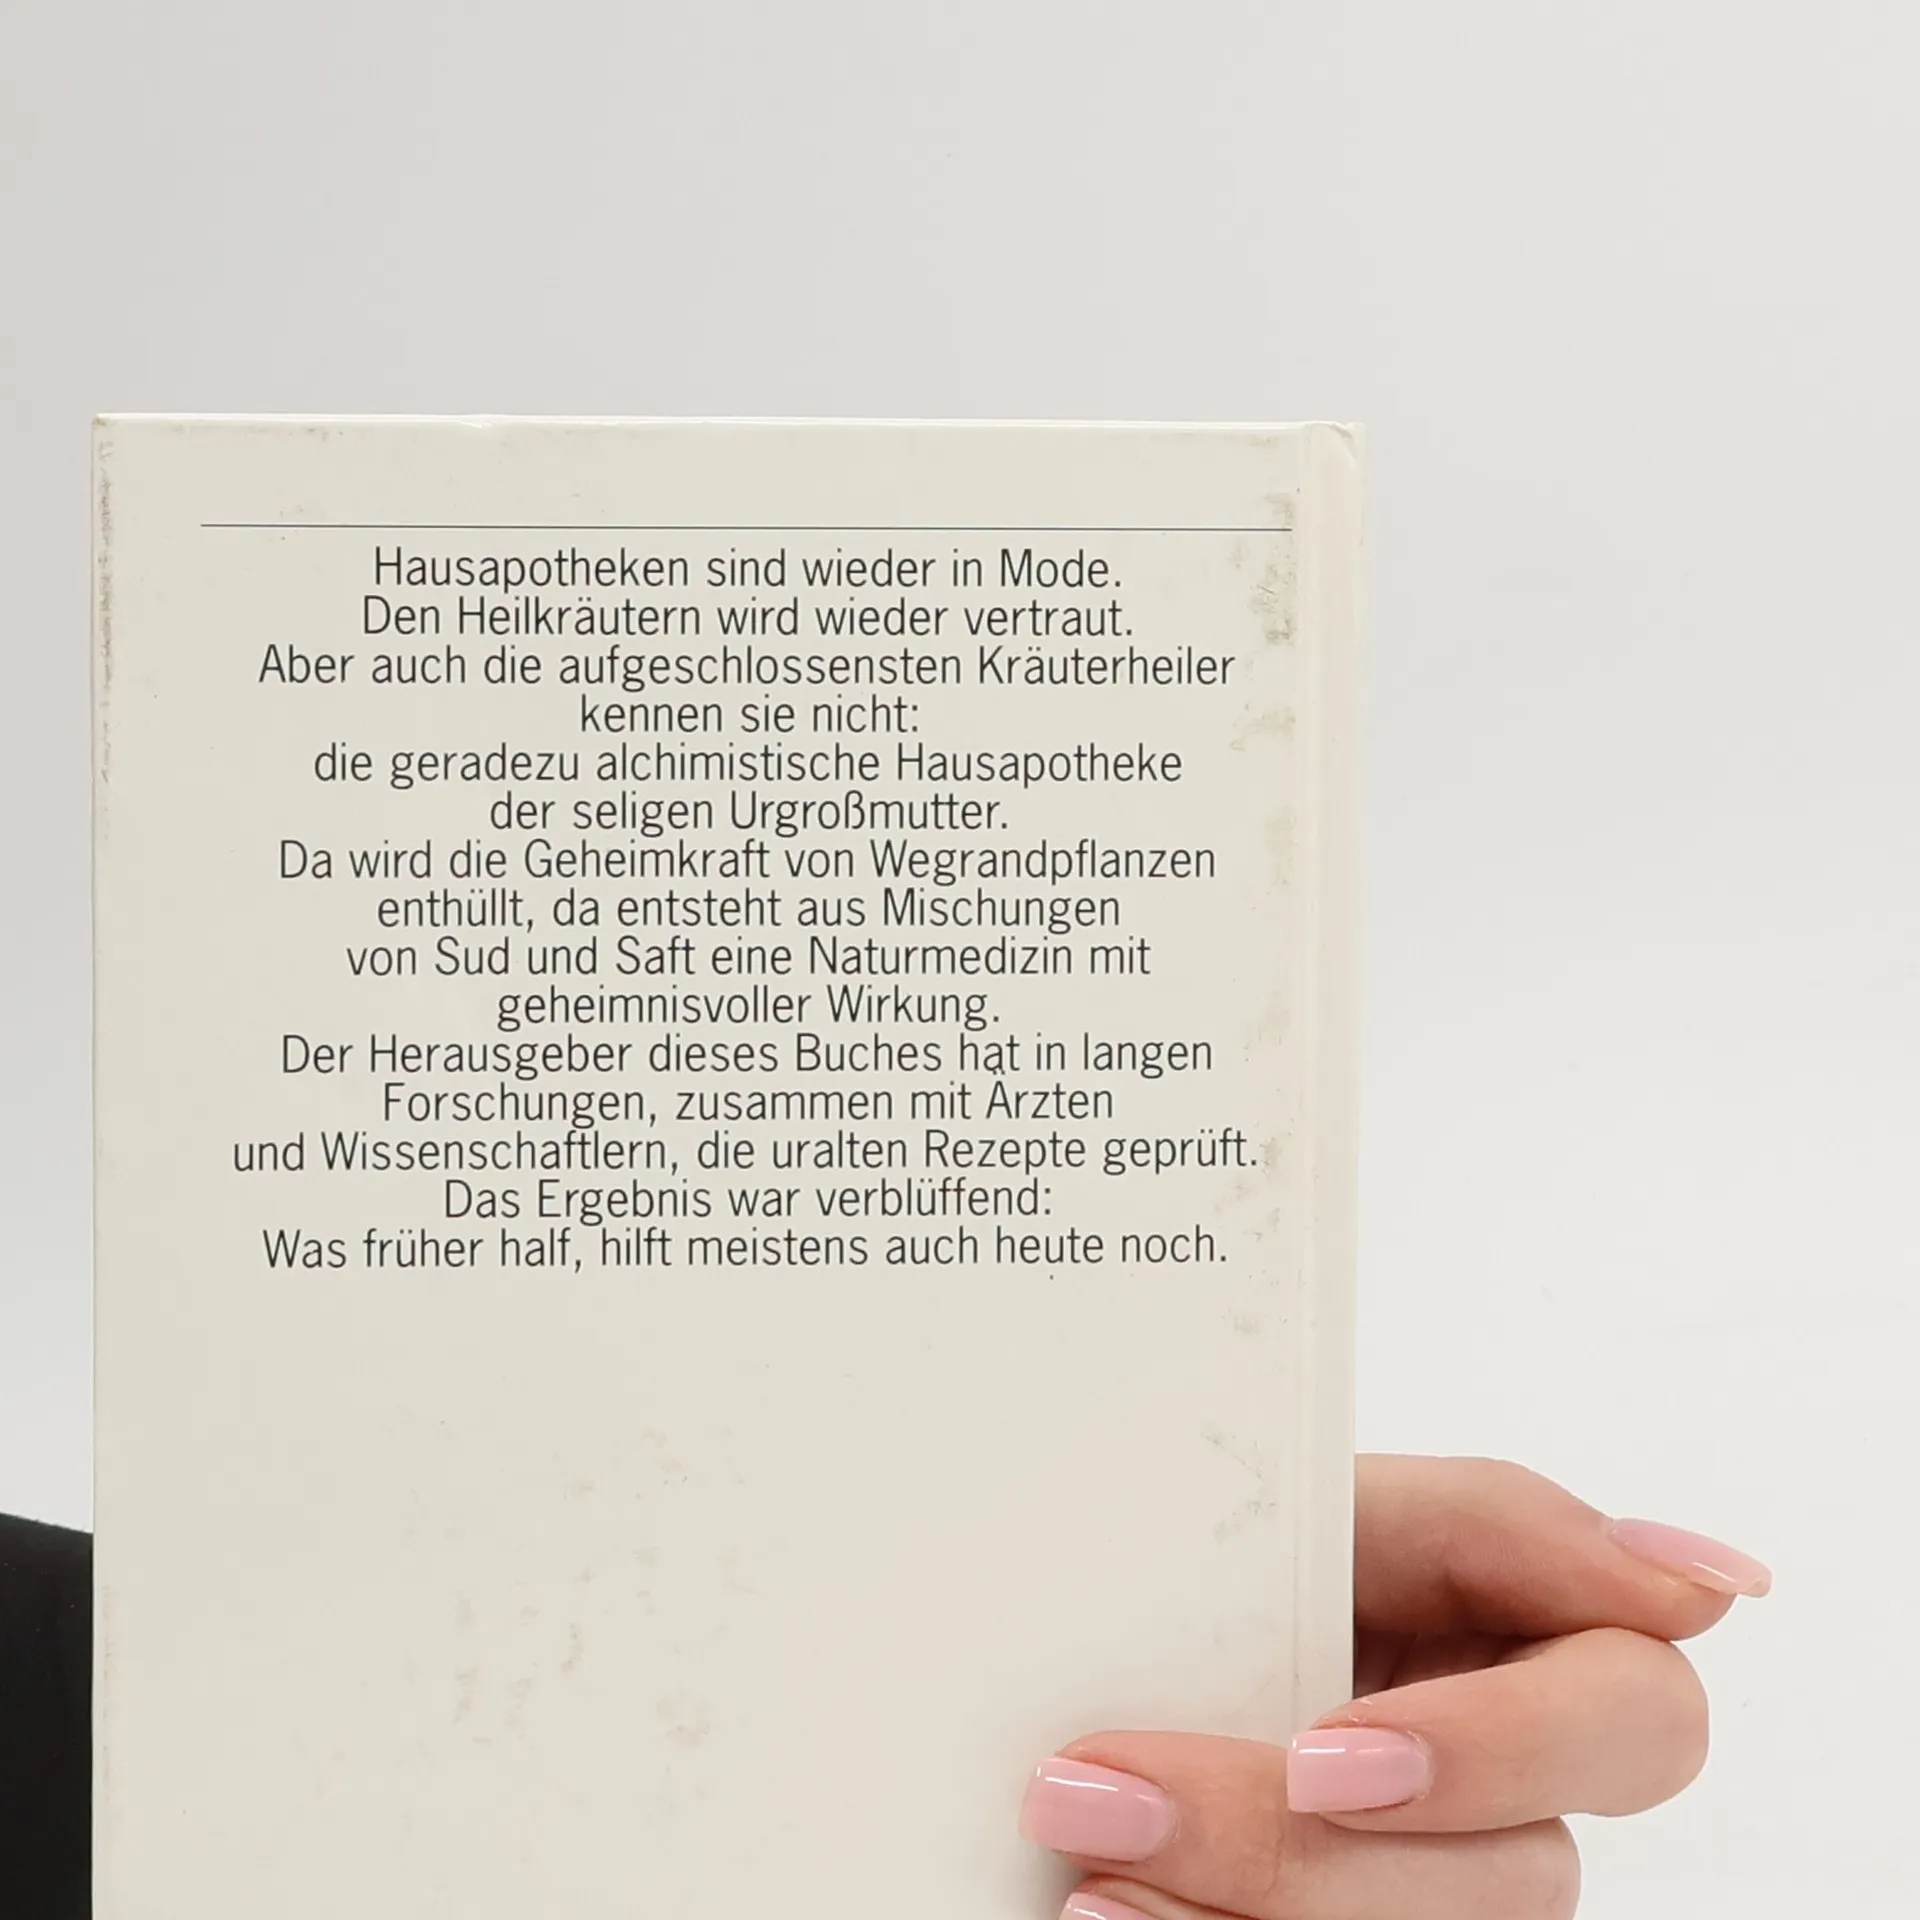 Hausapotheken sind wieder in Mode.
Den Heilkräutern wird wieder vertraut.
Aber auch die aufgeschlossensten Kräuterheiler
kennen sie nicht:
die geradezu alchimistische Hausapotheke
der seligen Urgroßmutter.
Da wird die Geheimkraft von Wegrandpflanzen
enthüllt, da entsteht aus Mischungen
von Sud und Saft eine Naturmedizin mit
geheimnisvoller Wirkung.
Der Herausgeber dieses Buches hat in langen
Forschungen, zusammen mit Ärzten
und Wissenschaftlern, die uralten Rezepte geprüft.
Das Ergebnis war verblüffend:
Was früher half, hilft meistens auch heute noch.